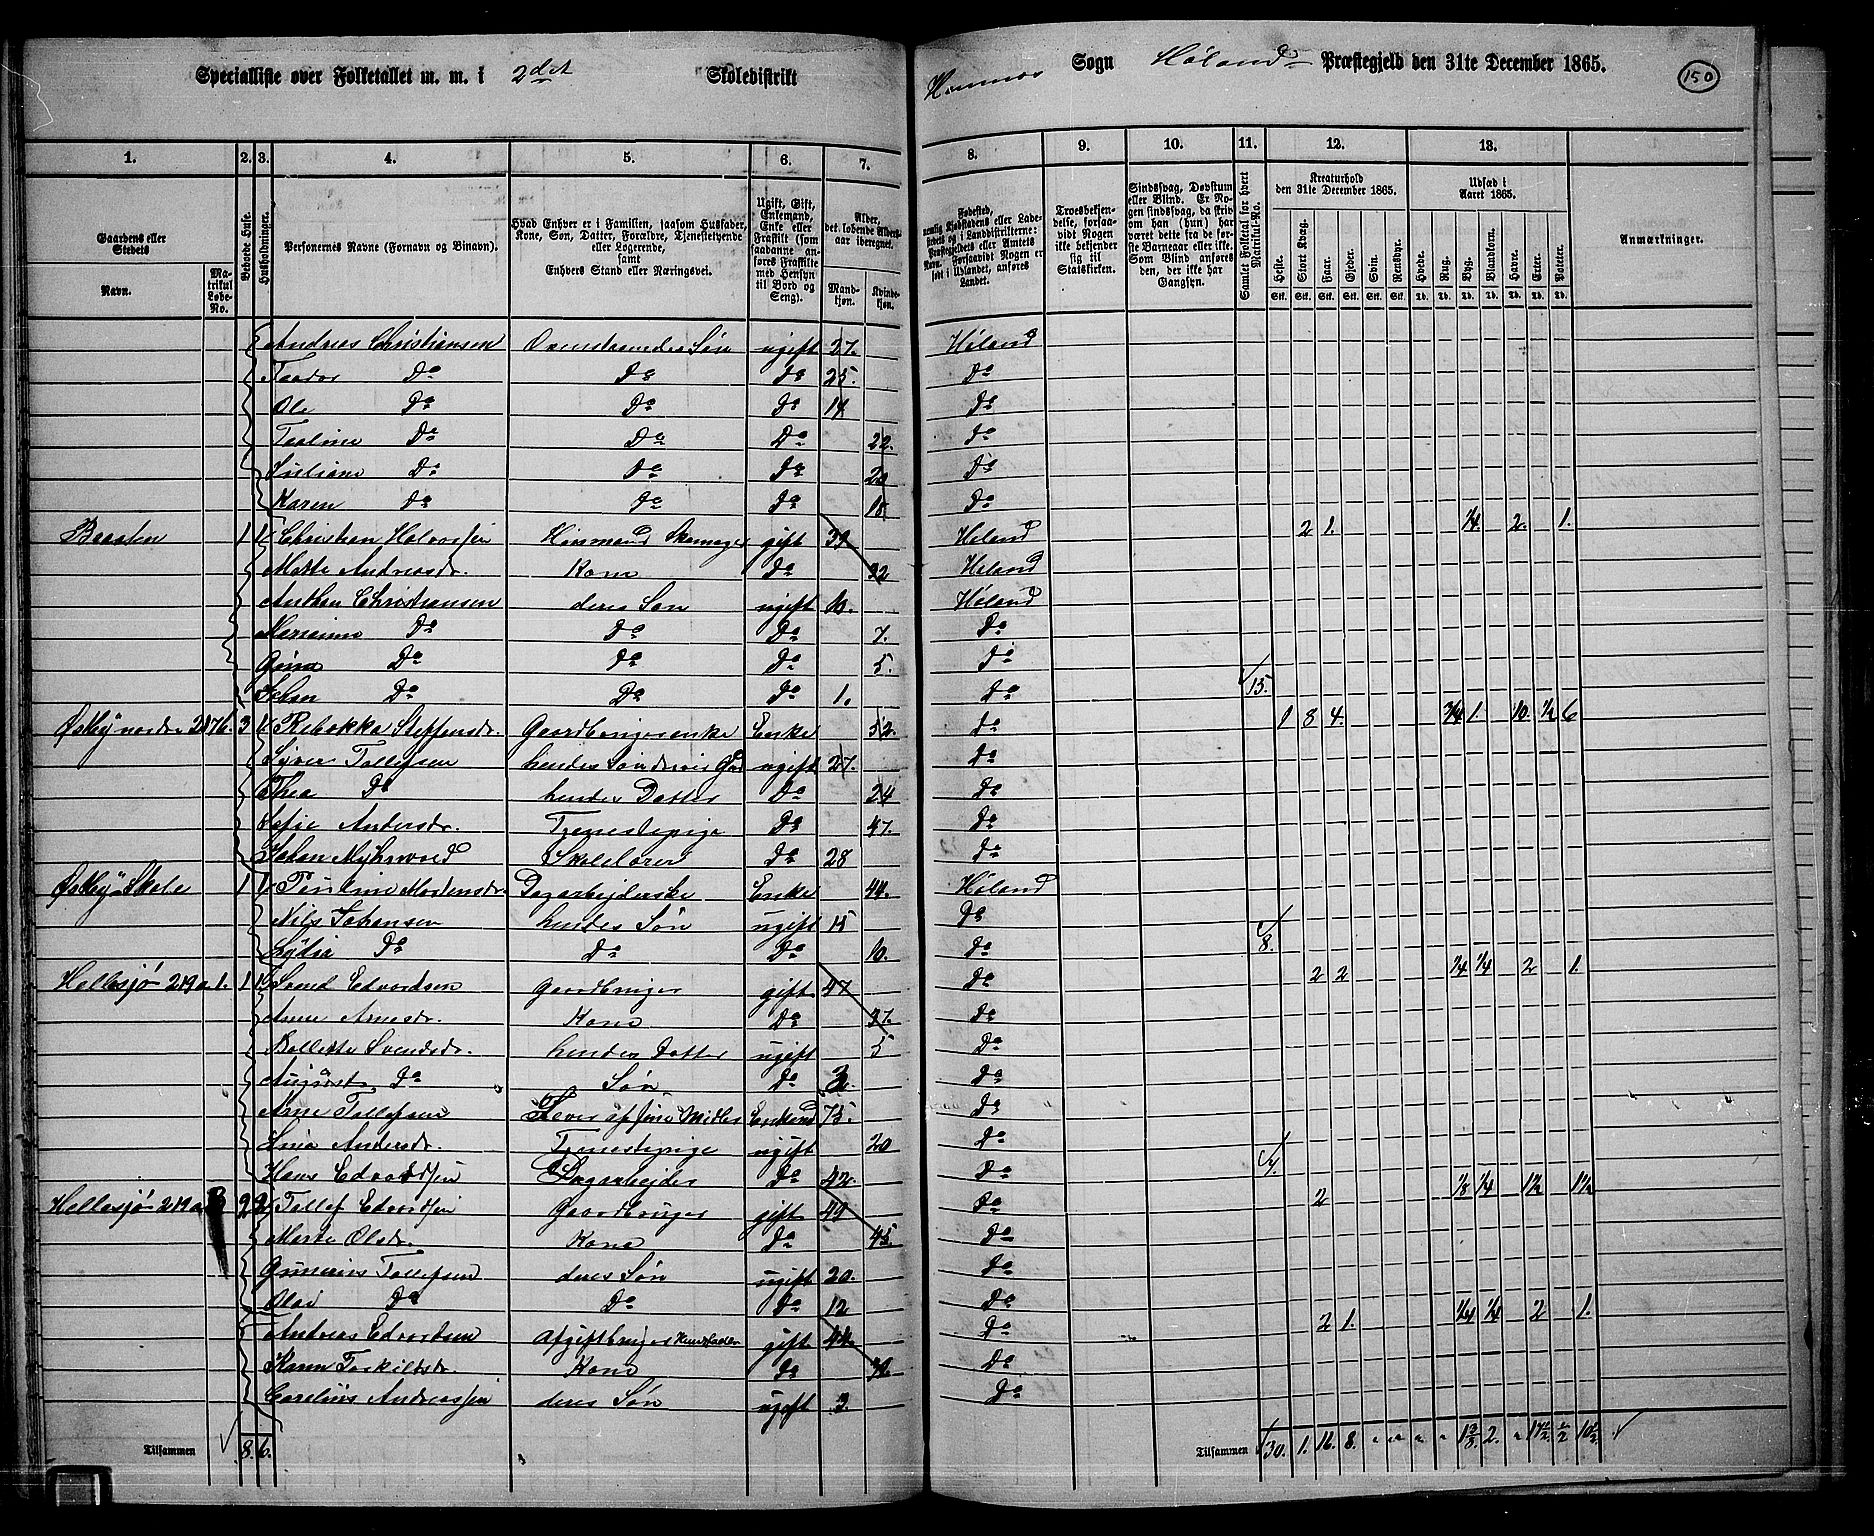 Specialliste over Folketallet m. m. i 2det Skoledistrikt
Sogn Høland Præstegjeld den 31te December 1865.
150
1. 2. 3. 4. 5. 6. 7. 8. 9. 10. 11. 12. 13.
Gaardens eller Stedets
Navn.
Matrikul Løbe-No.
Beboede Huse.
Husholdninger.
Personernes Navne (Fornavn og Binavn).
Hvad Enhver er i Familien, saasom Husfader, Kone, Søn, Datter, Forældre, Tjenestetyende eller Logerende, samt Enhvers Stand eller Næringsvei.
Ugift, Gift, Enkemand, Enke eller Fraskilt (som saadanne anføres Fraskilte med Hensyn til Bord og Seng).
Alder, det løbende Alders-aar iberegnet.
Mandkjøn.
Kvindekjøn.
Fødested,
Troesbekjendelse, forsaavidt Nogen ikke bekjender sig til Statskirken.
Sindssvag, Døvstum eller Blind. Er Nogen sindssvag, da skriv om han (hun) har været dette fra de første Barneaar eller ikke. Som Blind anføres den, der ikke har Gangsyn.
Samlet Folketal for hvert Matrikul-No.
Kreaturhold den 31te December 1865.
Heste. Stort Kvæg. Faar. Gjeder. Svin. Rensdyr.
Udsæd i Aaret 1865.
Hvede. Rug. Byg. Blandkorn. Havre. Erter. Poteter.
Anmærkninger.
Andreas Christiansen Søn ugift 27. Høland
Do Do Do 25. Do
Ole Do Do Do 14 Do
Do Do Do 22. Do
Juliane Do Do Do 20 Do
Karen Do Do Do 18 Do
Braaten 1 1 Christian Halvorsen Husmand Skomager gift 39 Høland 2 1. 1/4 2. 1.
Marte Andreasdr. Kone Do 32 Høland
Anthon Christiansen deres Søn ugift 10. Høland
Do Do Do 7. Do
Do Do Do 5. Do
Johan Do Do Do 1. Do 15.
Østby nordre 207b. 3 1 Rebekka Steffensdr. Gaardbrugerenke Enke 52. Do 1 8 4. 3/4 1. 10. 1/2 6
Syver Tollefsen ugift 27. Do
Thea Do hendes Datter Do 24 Do
Sofie Andersdr. Tjenestepige Do 47. Do
Johan Myhrvold Skolelærer Do 28 Do
Østby Skole 1 1 Pauline Mortensdr. Dagarbejderske Enke 44. Høland
Nils Johansen hendes Søn ugift 15 Do
Lydia Do Do Do 10. Do 8.
Hellesjø 219a 1. 1 1 Svend Edvardsen Gaardbruger gift 47 Do 2 2 1/4 1/4 2 1.
Anne Arnesdr. Kone Do 37. Do
Bollette Svendsdr. hendes Datter ugift 5 Do
August Do Søn Do Do
Arne Tollefsen Lever af sine Midler Enkemd 75. Do
Andersdr. Tjenestepige ugift 20 Do
Hans Edvardsen Dagarbejder Do 42. Do 7.
Hellesjø 219a 2 2 Tollef Edvardsen Gaardbruger gift 49 Do 2 1/8 1/4 1 1/2 1 1/2
Marte Olsdr. Kone Do 45. Do
Gunerius Tollefsen deres Søn ugift 20. Do
Olav Do Do Do 12 Do
Andreas Edvardsen gift 44. Do 2 1. 1/4 1/4 2 1.
Karen Torkildsdr. Kone Do Do
Andreassen deres Søn ugift 3. Do
Tilsammen 8. 6.
Tilsammen 30. 1. 16. 8. 1 3/8. 2. 17 1/2. 1/2 10 1/2.